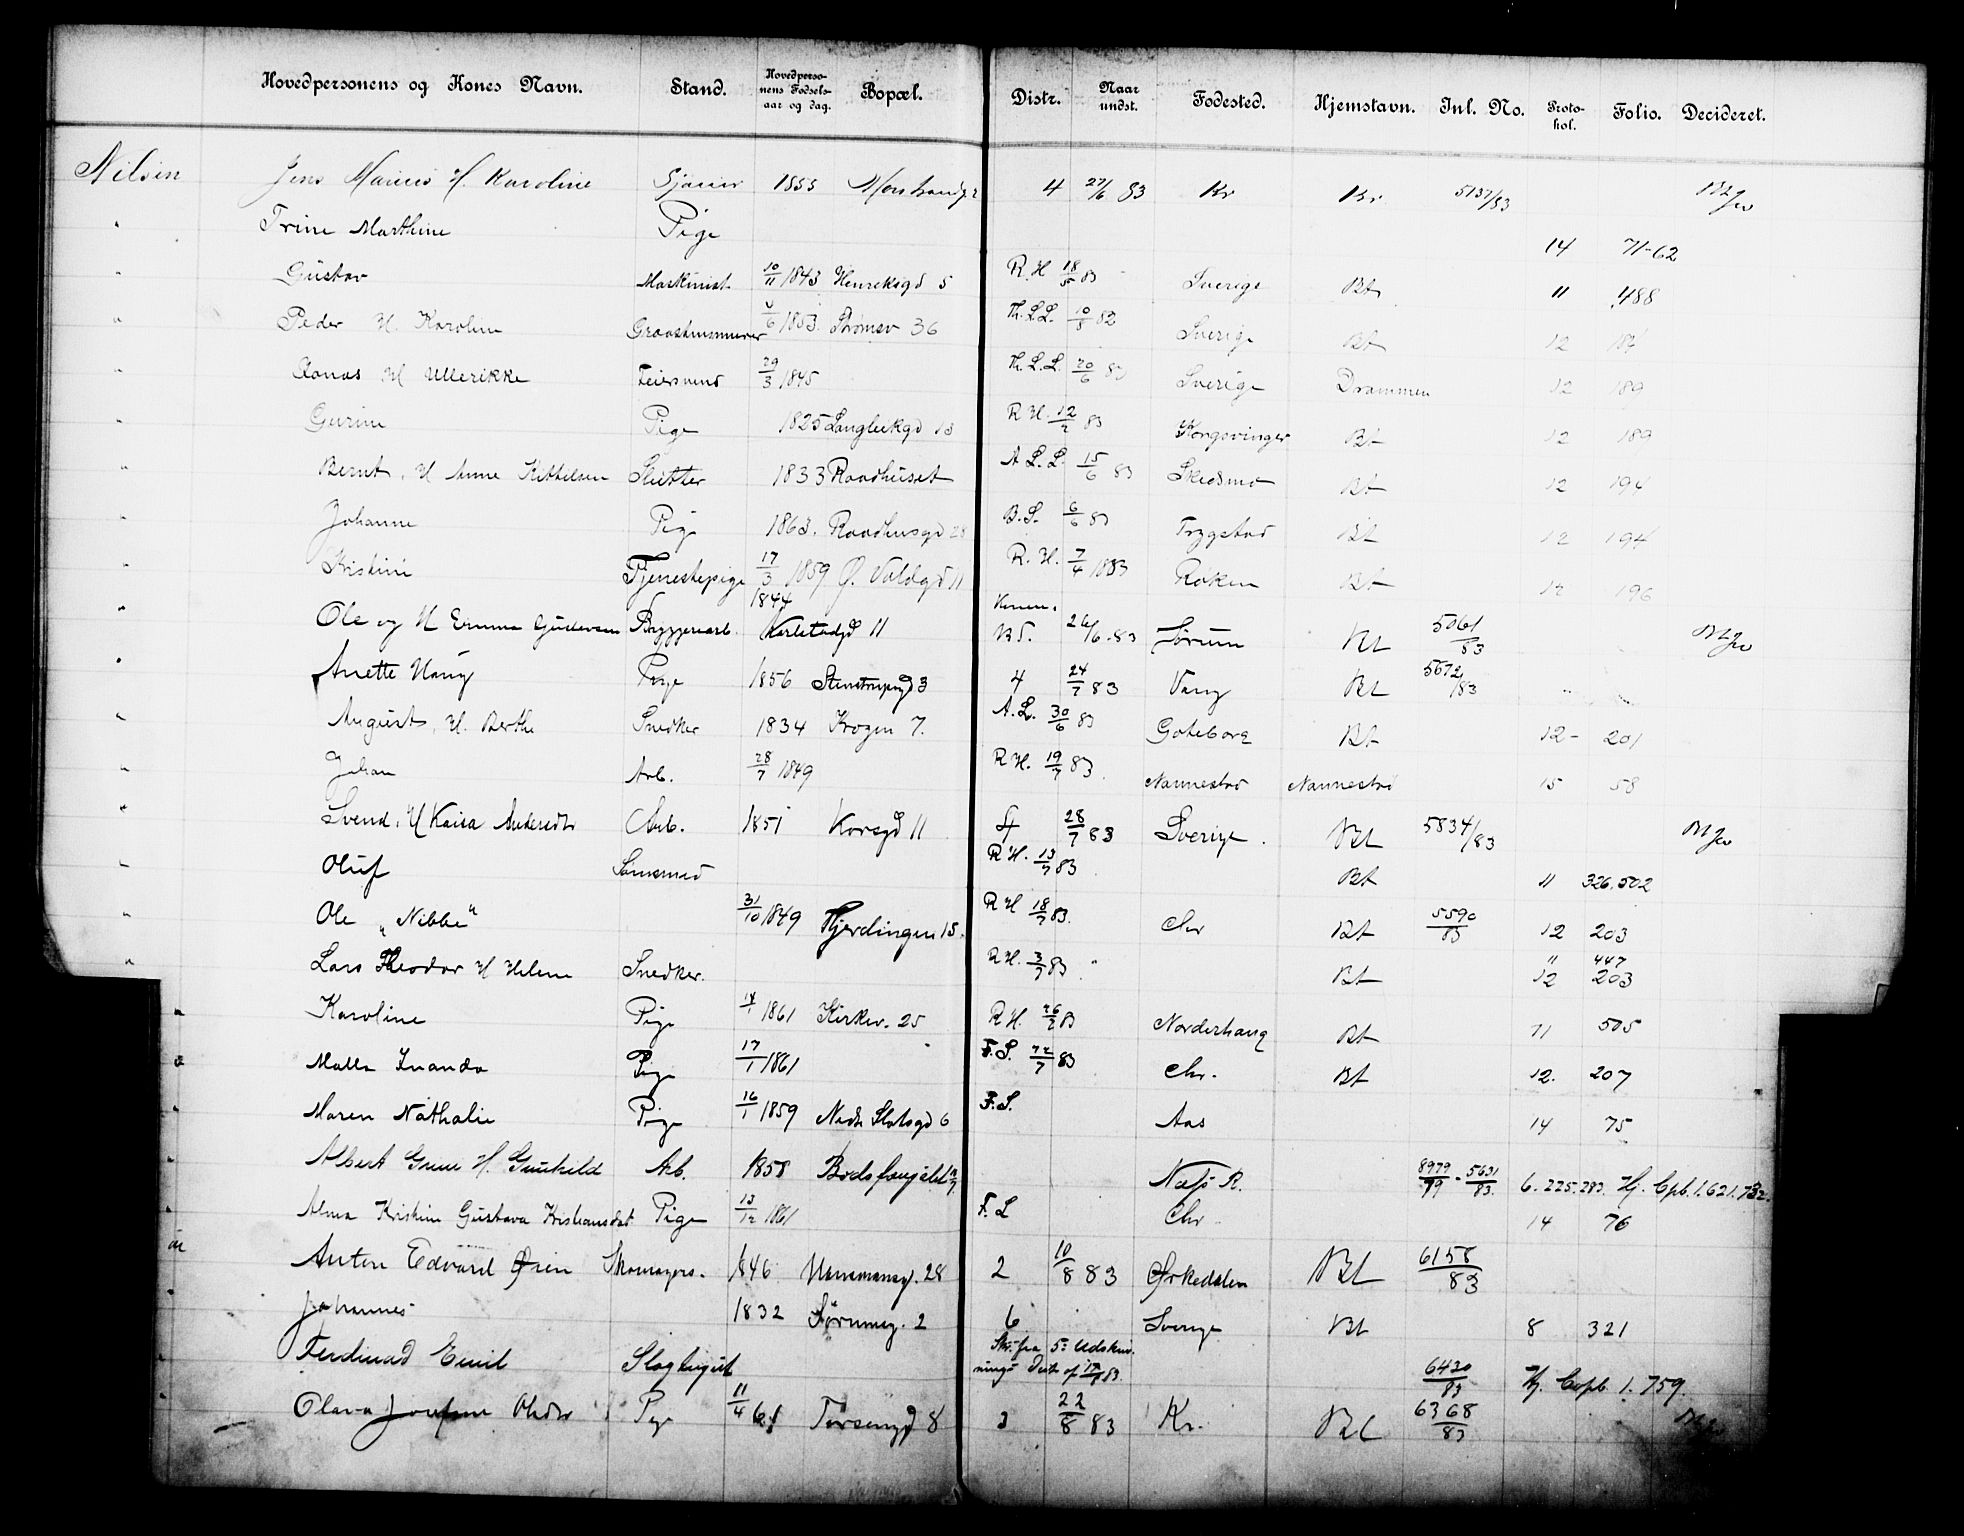 Hovedpersonens og Kones Navn. Stand. Hovedpersonens Fødselsaar og dag. Bopæl. Distr. Naar undst. Fødested. Hjemstavn. Inl. No. Protokol. Folio. Decideret.
Nilsen Jens Marius H. Karoline 1855 4 27/6 83 Kr Kr. 5137/83
" Trine Marthine Pige 14 71-62
" Gustav Maskinist 10/11 1843 Henriksgd 5 R.H 18/5 83 Sverige Bt 11 488
" Peder H. Karoline 1853. Strømsv 36 Th.L.L. 10/8 82 Sverige Bt 12 187
" Jonas H Ullerikke Feiersvend 29/3 1845 Th.L.L. 20/6 83 Sverige Drammen 12 189
" Gurine Pige 1825 Langleekgd 13 R.H. 12/2 83 Kongsvinger Bt 12 189
" Bernt, H Anne Kittelsen Slutter 1833 Raadhuset A L.L. 15/6 83 Skedsmo Bt 12 194
" Johanne Pige 1863. Raadhusgd 28 B.S. 6/6 83 Trygstad Bt 12 194
" Kristine Tjenestepige 17/3 1859 Ø. Voldgd 11 R.H. 7/4 1883 Røken Bt 12 196
" Ole og H Emma Gudevsen Byggearb. 1844 Karlstadgd 11 26/6-83 Sørum Bt 5061/83
" Anette Haug Pige 1856 Stenstrupgd 3 4 24/7 83 Vang Bt 5672/83
" August, H. Berthe Snedker 1834 Krogen 7. A.L. 30/6 83 Gøteborg Bt 12- 201
" Johan Arb. 28/7 1849 R.H. 19/7 83 Nannestad Nannestad 15 58
" Svend, H Kaisa Andersdtr Arb. 1851 Korsgd 11 4 28/7 83 Sverige. Bt 5834/83
" Oluf R.H. 13/7 83 Bt 11 326.502
" Ole „Nibbe" 31/10 1849 Fjerdingen 15. R H 18/7 83. Chr Bt 5590/83 12 203
" Lars Theodor H Helene Snedker. R.H. 3/7 83 " Bt " 447 12 203
" Karoline Pige 1861 Kirkev. 25 R.H. 26/2 83 Norderhaug Bt 11 505
" Malla Inanda Pige 17/1 1861 F.S. 22/7 83 Chr. Bt 12. 207
" Maren Nathalie Pige 16/1 1859 Nedr Slotsgd 6 F.S. Aas 14 75
" Albert Grue H. Gunhild Arb. 1858 Næs R. 8979/79 - 5631/83. 6. 225.283. Hj. Cpb. 1.621.732.
" Alma Kristine Gustava Kristiansdat Pige 13/12 1861 F. L Chr 14 76
" Anton Edvard Øien Skomagers. 1846 Hansmansg. 28 2 10/8 83 Ørkedalen Bt 6158/83
Johannes 1832 Sørumg. 2 6 Sverige Bt 8 321
Ferdinad Emil Slagtergut Skr. fra 5te Udskrivnings Distr af 17/8 83. 6420/83 Hj. Copb. 1. 759.
Olava Josefine Olsdtr Pige 11/4 61 Torsengd 8 2 22/8 83 Kr. Bt 6368/83